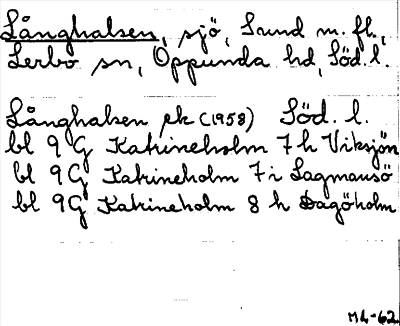 Långhalsen, sjö, Sund m. fl.,
Lerbo sn, Oppunda hd, Söd. l.
Långhalsen ek (1958) Söd. l.
bl 9 G Katrineholm 7 h Viksjön
bl 9G Katrineholm 7 i Lagmansö
bl 9G Katrineholm 8 h Dagöholm
ML-62